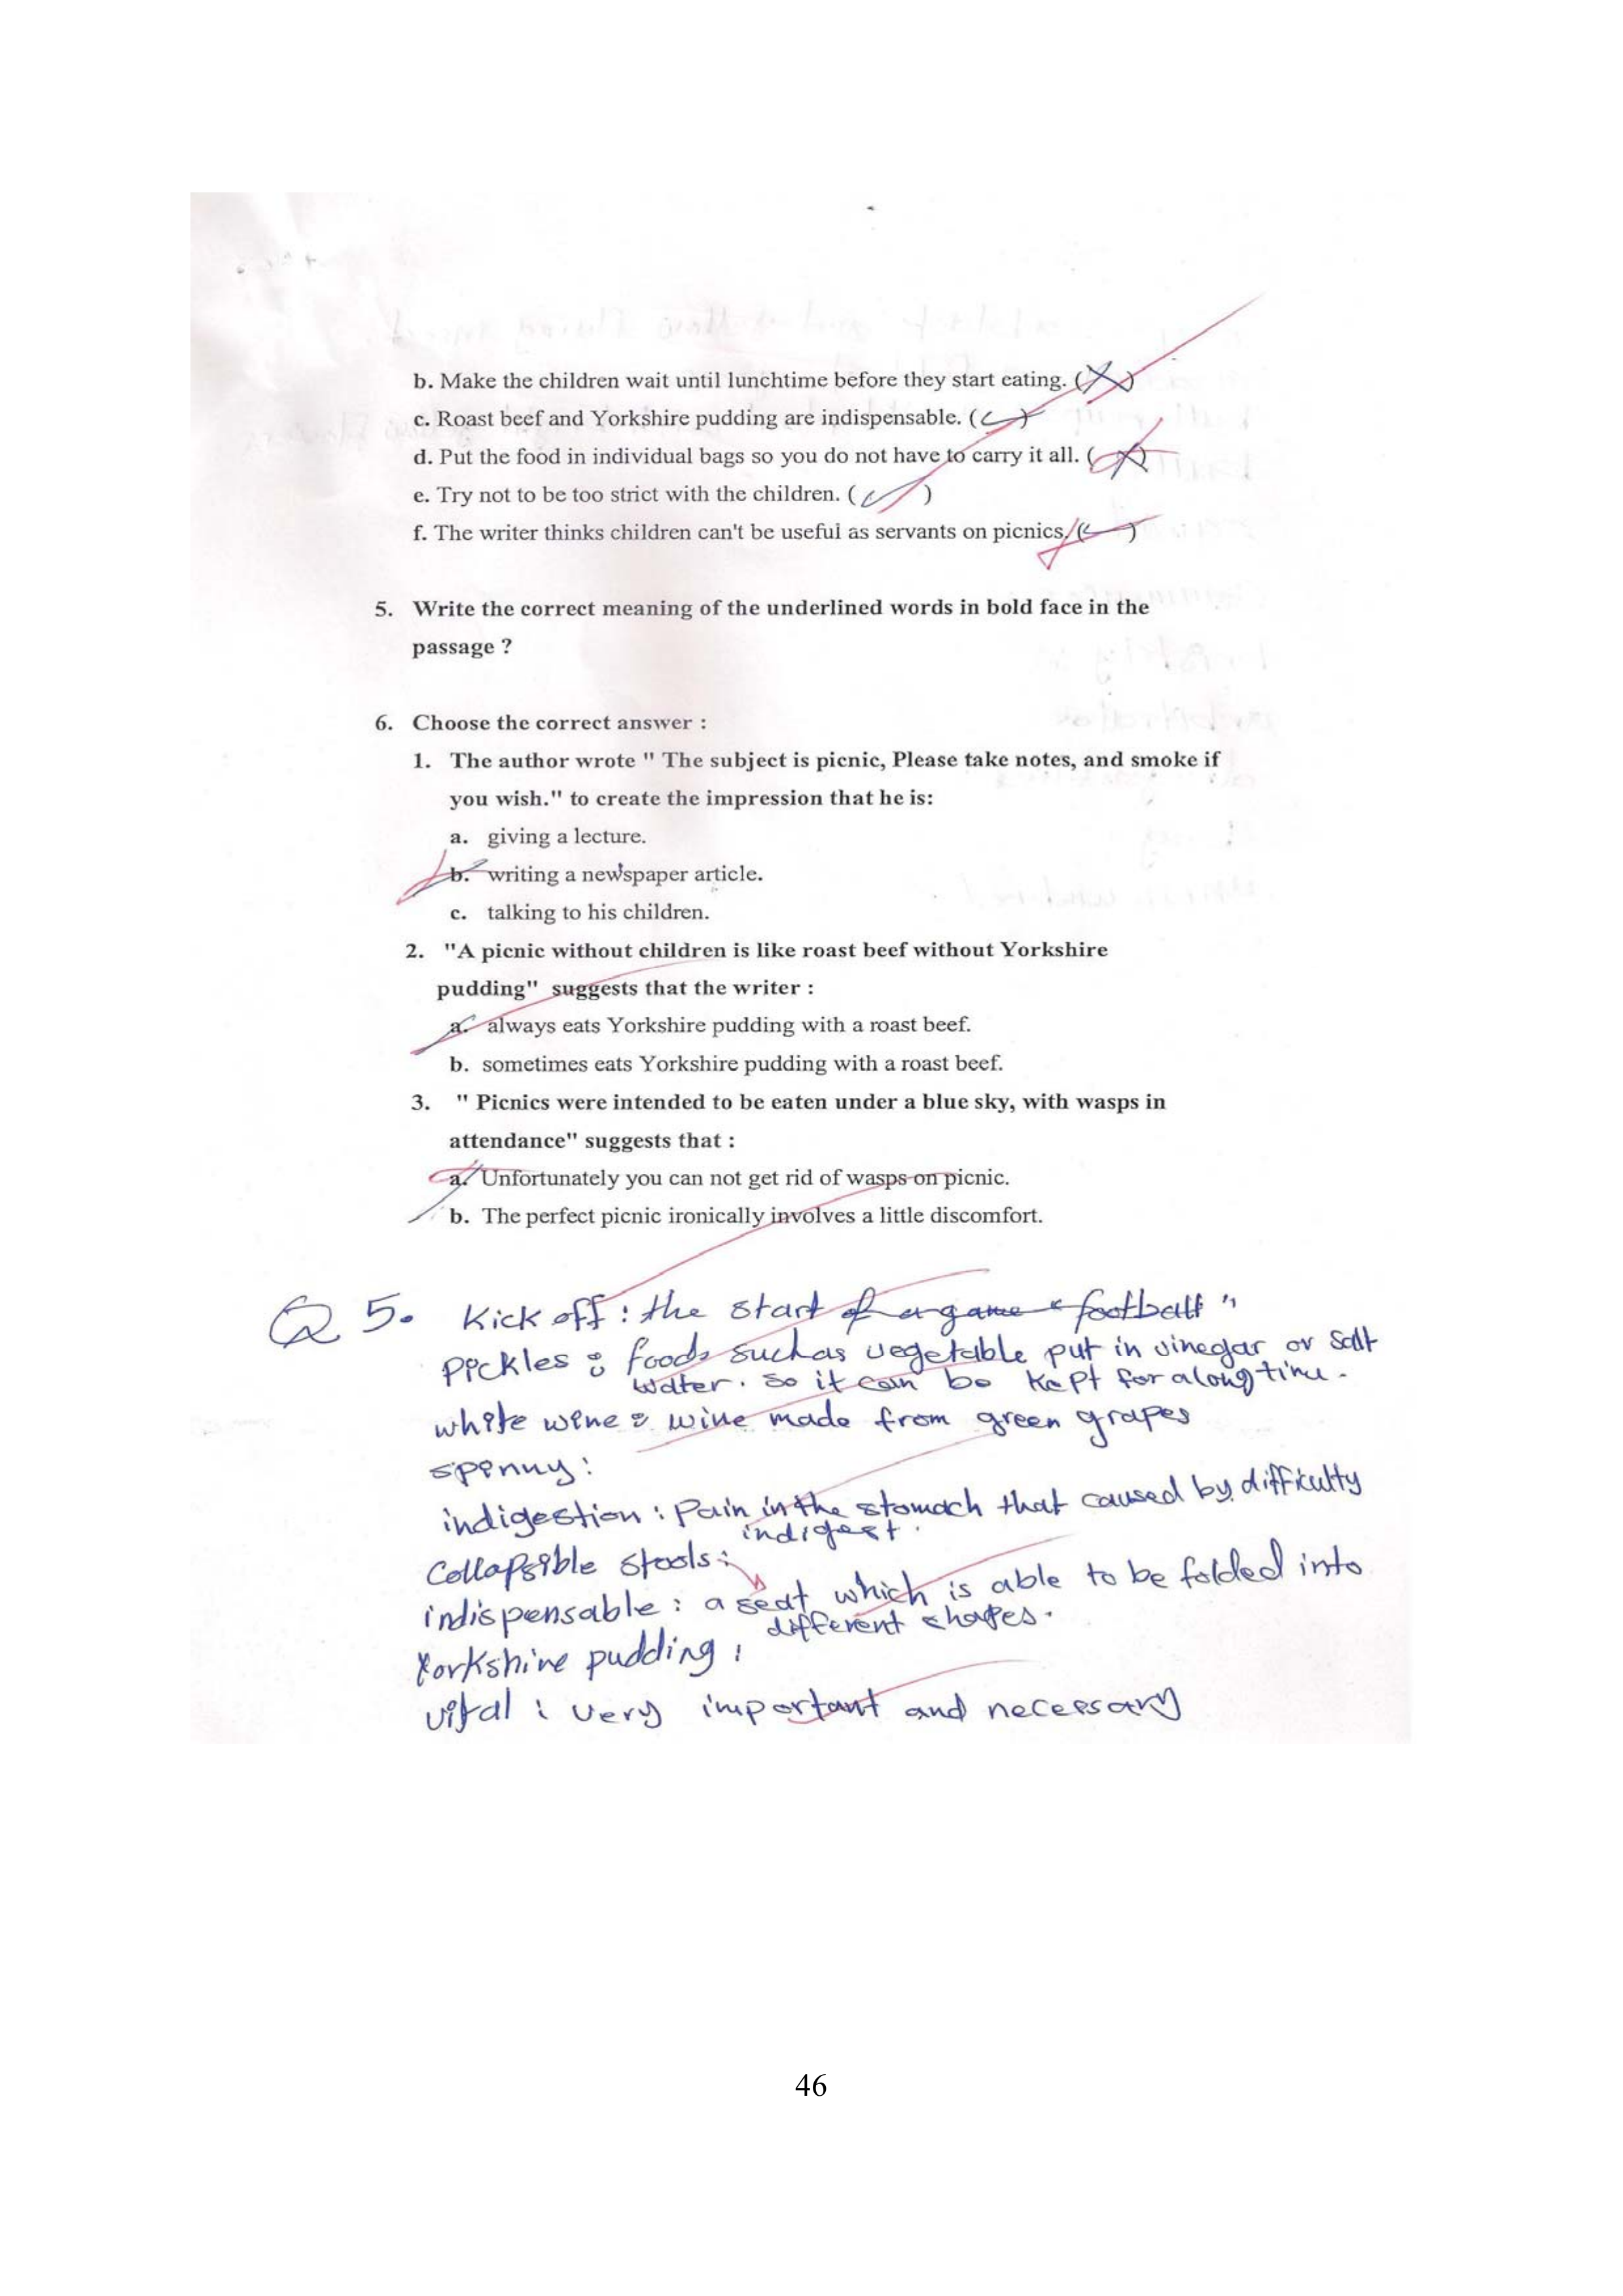 b. Make the children wait until lunchtime before they start eating. (X)
c. Roast beef and Yorkshire pudding are indispensable. (✓)
d. Put the food in individual bags so you do not have to carry it all. (X)
e. Try not to be too strict with the children. (✓)
f. The writer thinks children can't be useful as servants on picnics. (✓)
5. Write the correct meaning of the underlined words in bold face in the
passage ?
6. Choose the correct answer :
1. The author wrote " The subject is picnic, Please take notes, and smoke if
you wish." to create the impression that he is:
a. giving a lecture.
b. writing a newspaper article.
c. talking to his children.
2. "A picnic without children is like roast beef without Yorkshire
pudding" suggests that the writer :
a. always eats Yorkshire pudding with a roast beef.
b. sometimes eats Yorkshire pudding with a roast beef.
3. " Picnics were intended to be eaten under a blue sky, with wasps in
attendance" suggests that :
a. Unfortunately you can not get rid of wasps on picnic.
b. The perfect picnic ironically involves a little discomfort.
Q 5. Kick off : the start of a game "football"
Pickles : foods such as vegetable put in vinegar or salt
water. So it can be kept for a long time.
white wine : wine made from green grapes
spinny :
indigestion : Pain in the stomach that caused by difficulty
indigest.
Collapsible stools :
indispensable : a seat which is able to be folded into
different shapes.
Yorkshire pudding :
vital : very important and necessary
46